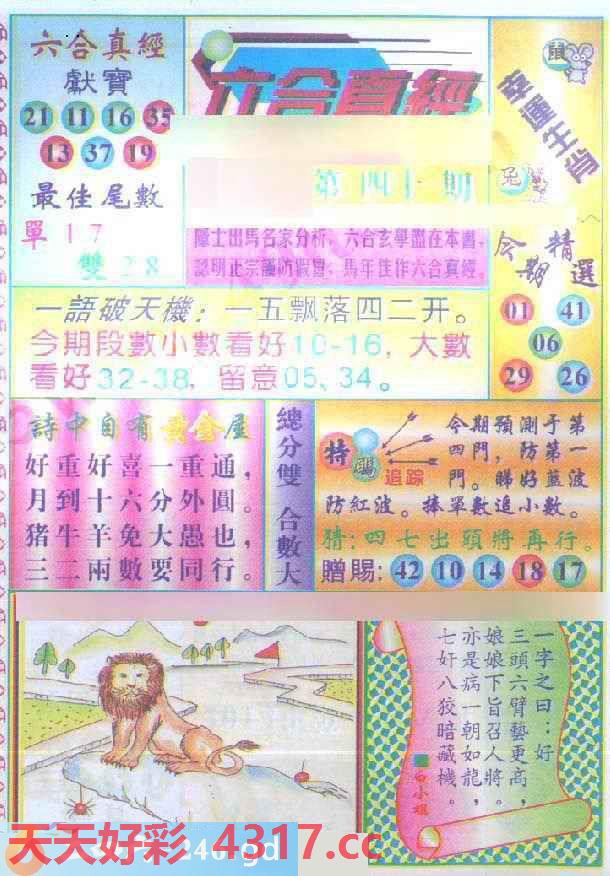 六合真經
獻寶
21 11 16 35
13 37 19
最佳尾數
單17
雙28
六合真經
第四十期
隱士出馬名家分析，六合玄學盡在本書，
認明正宗謹防假冒，馬年佳作六合真經。
鼠
幸運生肖
兔
今期精選
01 41
06
29 26
一語破天機：一五飘落四二开。
今期段數小數看好10-16，大數
看好32-38，留意05、34。
詩中自有黃金屋
好重好喜一重通，
月到十六分外圓。
猪牛羊兔大愚也，
三二兩數要同行。
總分雙 合數大
特碼
追踪
今期預測于第
四門，防第一
門。睇好藍波
防紅波。捧單數追小數。
猜：四七出頭將再行。
贈賜：42 10 14 18 17
一字之曰：好
三頭六臂藝更高，
娘娘下旨召人將。
亦是病一朝如龍，
七奸八狡暗藏機。
白小姐
天天好彩 4317.cc
246.gd